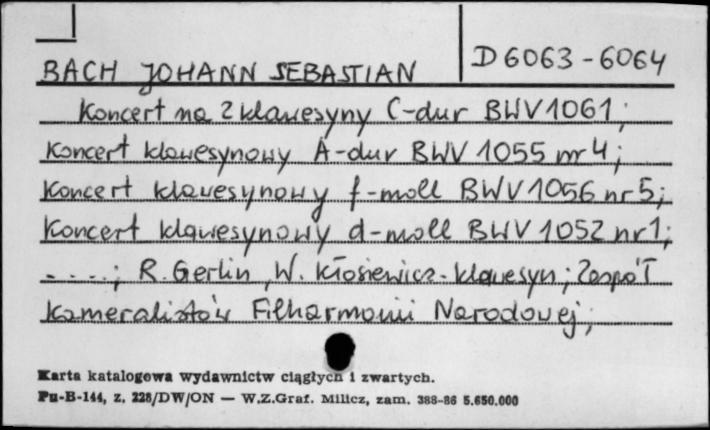 D 6063-6064
BACH JOHANN SEBASTIAN
Koncert na 2 klawesyny C-dur BWV 1061;
Koncert klawesynowy A-dur BWV 1055 nr 4;
Koncert klawesynowy f-moll BWV 1056 nr 5;
Koncert klawesynowy d-moll BWV 1052 nr 1;
.....; R. Gerlin, W. Kłosiewicz - klawesyn; Zespół
Kameralistów Filharmonii Narodowej;
Karta katalogowa wydawnictw ciągłych i zwartych.
Pu-B-144, z. 228/DW/ON — W.Z.Graf. Milicz, zam. 388-86 5.650.000